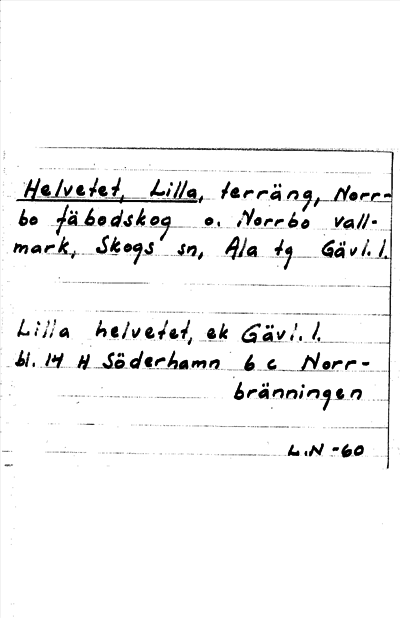 Helvetet, Lilla, terräng, Norr-
bo fäbodskog o. Norrbo vall-
mark, Skogs sn, Ala tg Gävl. l.
Lilla helvetet, ek Gävl. l.
bl. 14 H Söderhamn 6 c Norr-
bränningen
L.N -60